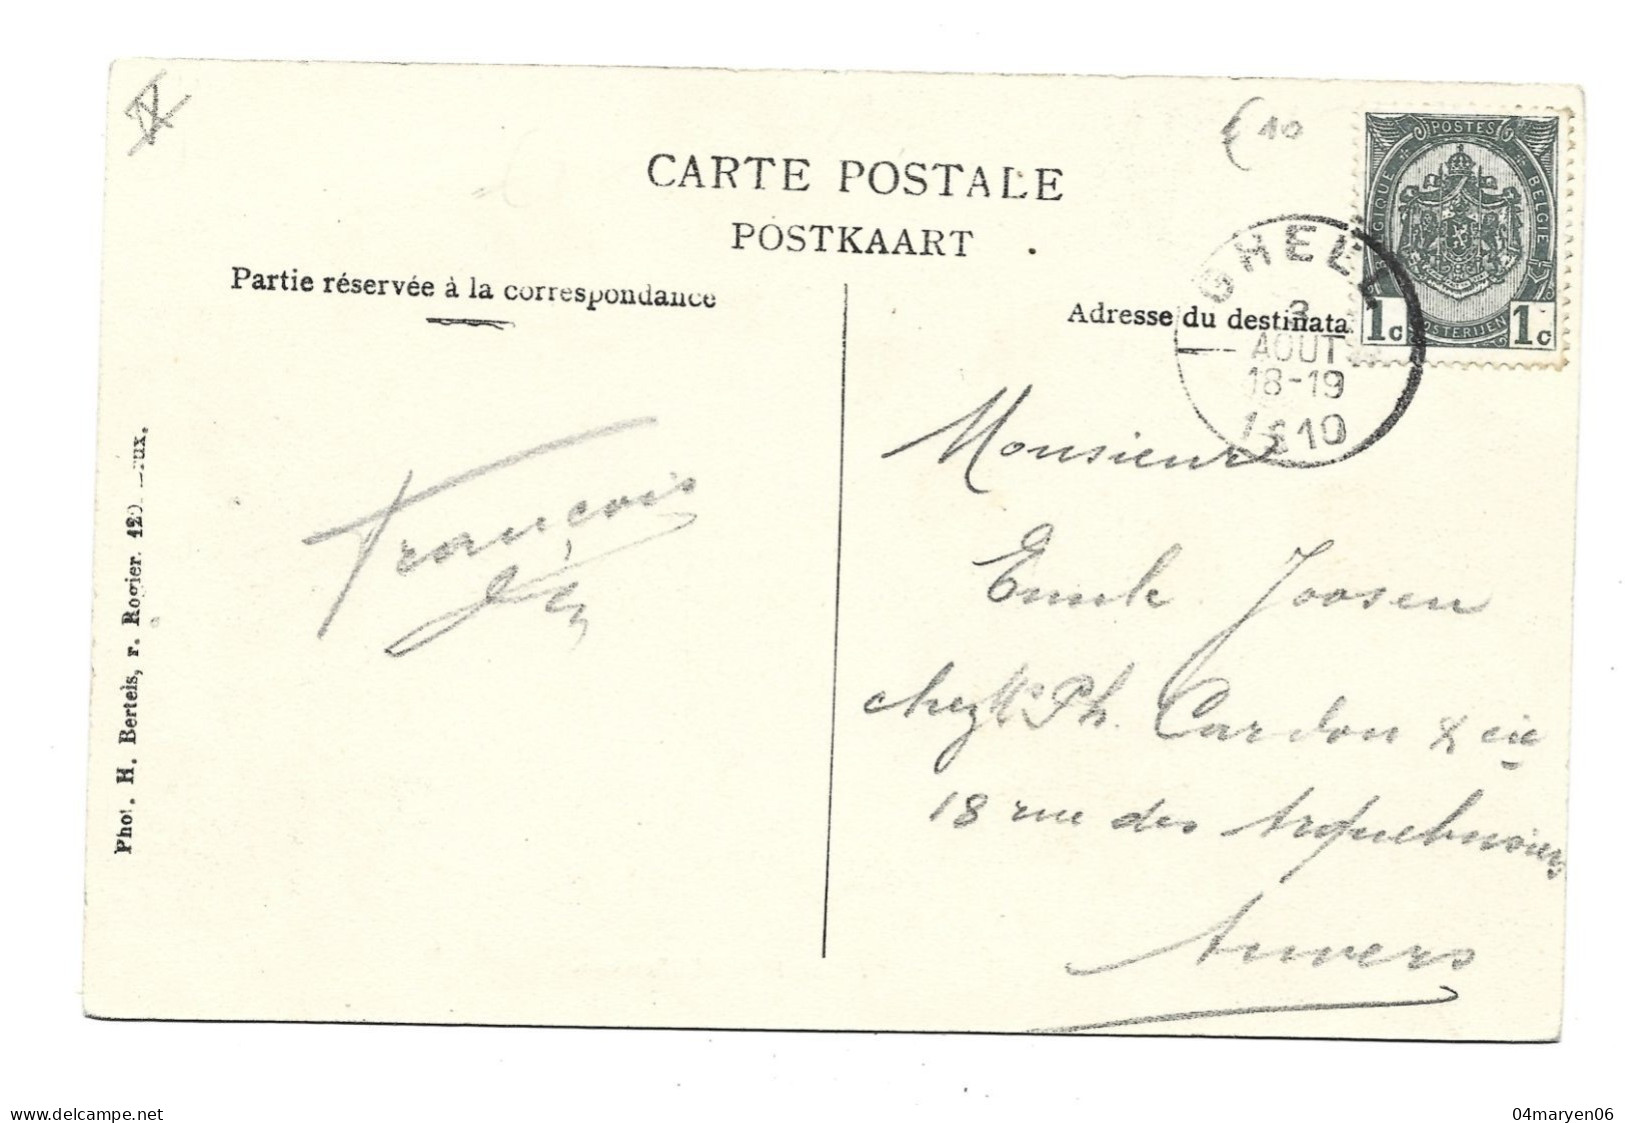 € 10
CARTE POSTALE
POSTKAART
Partie réservée à la correspondance
Adresse du destinata
POSTES
BELGIQUE
BELGIË
POSTERIJEN
1c 1c
GHEEL
3
AOUT
18-19
1910
François
Monsieur
Emile Joosen
chez Mr Ph. Cardon & cie
18 rue des Arquebusiers
Anvers
Phot. H. Bertels, r. Rogier. 120. Brux.
delcampe.net
04maryen06